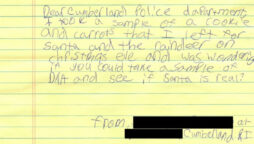 Dear Cumberland Police dapartment,
I took a sample of a cookie
and carrots that I left for
Santa and the raindeer on
christmas eve and was wondering
if you could take a sample of
DNA and see if Santa is real?
from at
Cumberland RI